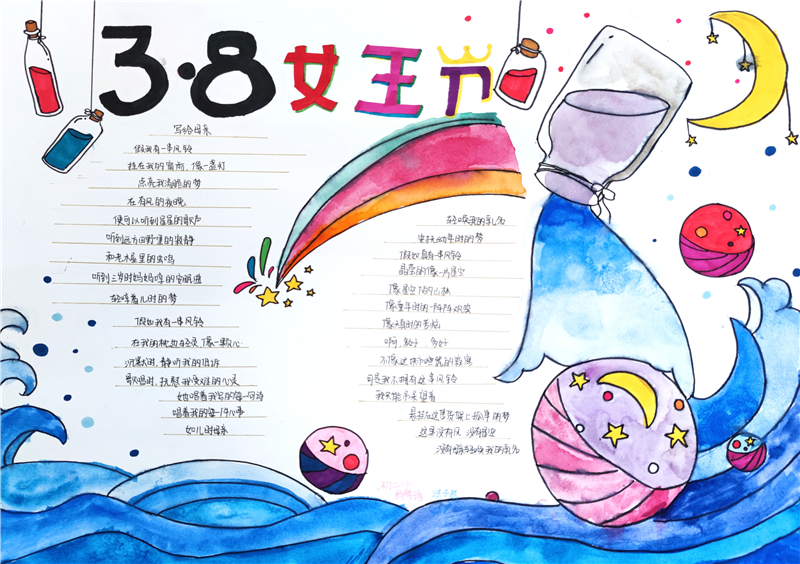 3·8女王节
写给母亲
假如我有一串风铃
挂在我的窗前,像一盏灯
点亮我清脆的梦
在有风的夜晚
便可以听到星星的歌声
听到远方田野里的寂静
和老木屋里的虫鸣
听到三岁时妈妈哼的安眠谣
轻哼着儿时的梦
假如我有一串风铃
在我的枕边轻灵,像一颗心
沉默时,静听我的倾诉
歌唱时,抚慰我受难的心灵
她唱着我写的每一句诗
唱着我的每一个心事
如儿时母亲
轻唤我的乳名
安抚幼年时的梦
假如真有串风铃
晶莹的像一片星空
像星空下的山林
像童年时的一阵阵欢笑
像天真时的苦恼
啊,数好,多好
不像这休的喧嚣的寂寞
可是我不拥有这串风铃
我只能永远望着
悬挂在这里
这里没有风 没有星空
没有母亲轻唤我的乳名